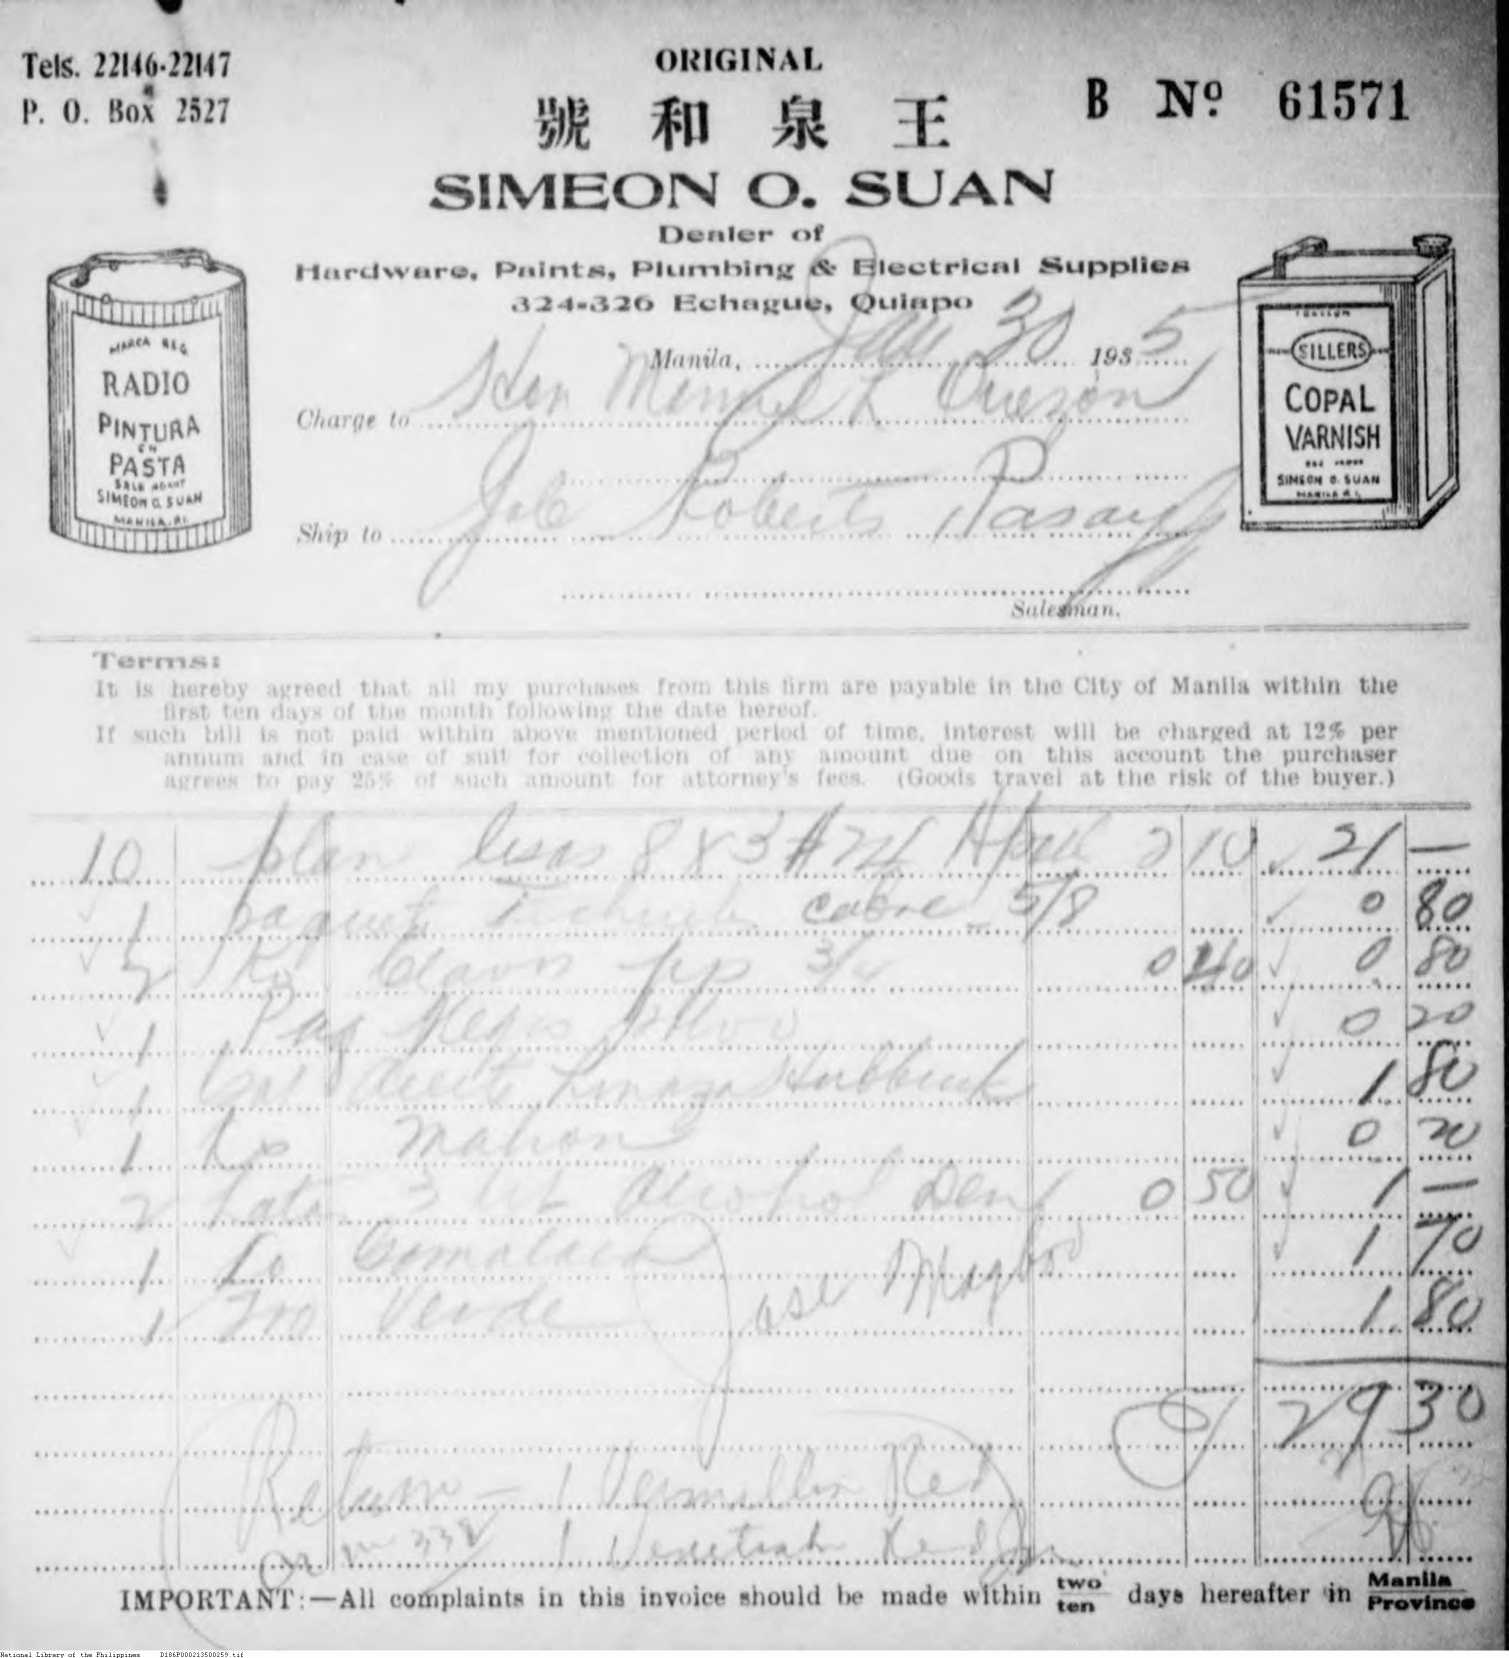 Tels. 22146-22147
P. O. Box 2527
ORIGINAL
B Nº 61571
號和泉王
SIMEON O. SUAN
Dealer of
Hardware, Paints, Plumbing & Electrical Supplies
324-326 Echague, Quiapo
Manila, Jan 30 1935
Charge to Hon Manuel L Quezon
Ship to Job Roberts Pasay
Salesman.
MARCA REG
RADIO
PINTURA
EN
PASTA
SALE AGENT
SIMEON O. SUAN
MANILA, P.I.
SILLERS
COPAL
VARNISH
SIMEON O. SUAN
MANILA P.I.
Terms:
It is hereby agreed that all my purchases from this firm are payable in the City of Manila within the
first ten days of the month following the date hereof.
If such bill is not paid within above mentioned period of time, interest will be charged at 12% per
annum and in case of suit for collection of any amount due on this account the purchaser
agrees to pay 25% of such amount for attorney's fees. (Goods travel at the risk of the buyer.)
10 plan lisas 8 x 3 # 24 2 10 21 —
1 paquete cobre 5/8 0 80
2 Ko Clavos pp 3/4 0 40 0 80
1 Paq Negro 0 20
1 Gal Aceite Linaza Hubbuck 1 80
1 Lo Mahon 0 20
2 Latas 3 Alcohol Den 0 50 1 —
1 Lo Gomalaca 1 70
1 Verde 1 80
Jose
29 30
Return — 1 Vermillion Red
1 Venetian Red
IMPORTANT:—All complaints in this invoice should be made within two ten days hereafter in Manila Province
National Library of the Philippines D186P000213500259.tif